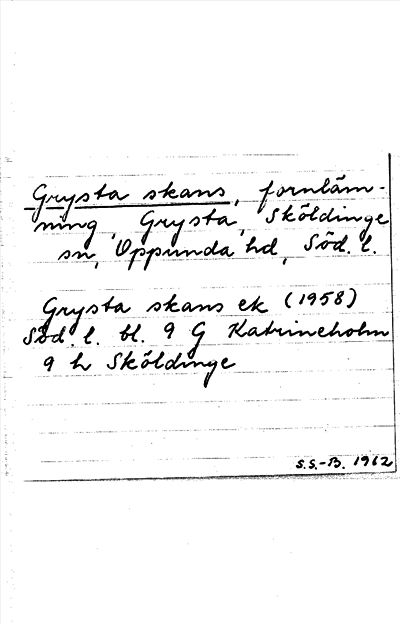 Grysta skans, fornläm-
ning, Grysta, Sköldinge
sn, Oppunda hd, Söd. l.
Grysta skans ek (1958)
Söd. l. bl. 9 G Katrineholm
9 h Sköldinge
S.S.-B. 1962